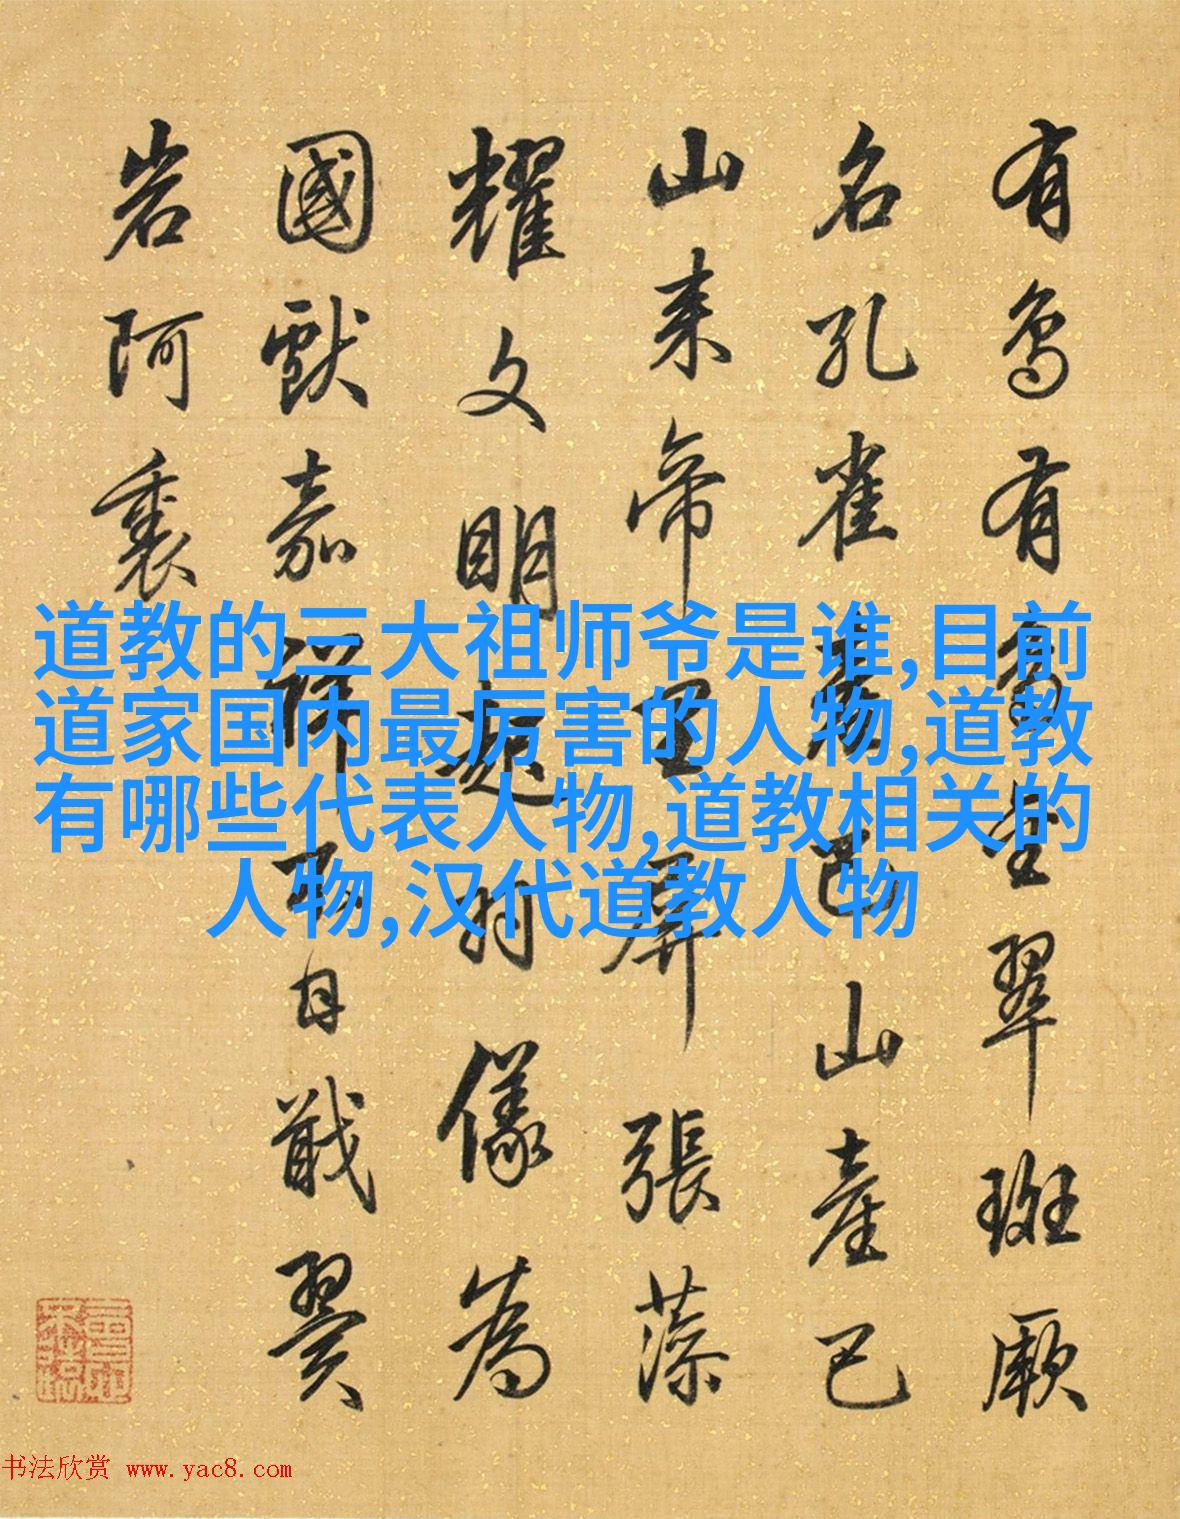 有鳥有鳥翠斑厥
名孔雀巴山產巴
山來帝里屏張藻
耀文明起羽儀為
國獻嘉祥戢翼
岩阿裏
道教的三大祖师爷是谁,目前
道家国内最厉害的人物,道教
有哪些代表人物,道教相关的
人物,汉代道教人物
书法欣赏 www.yac8.com